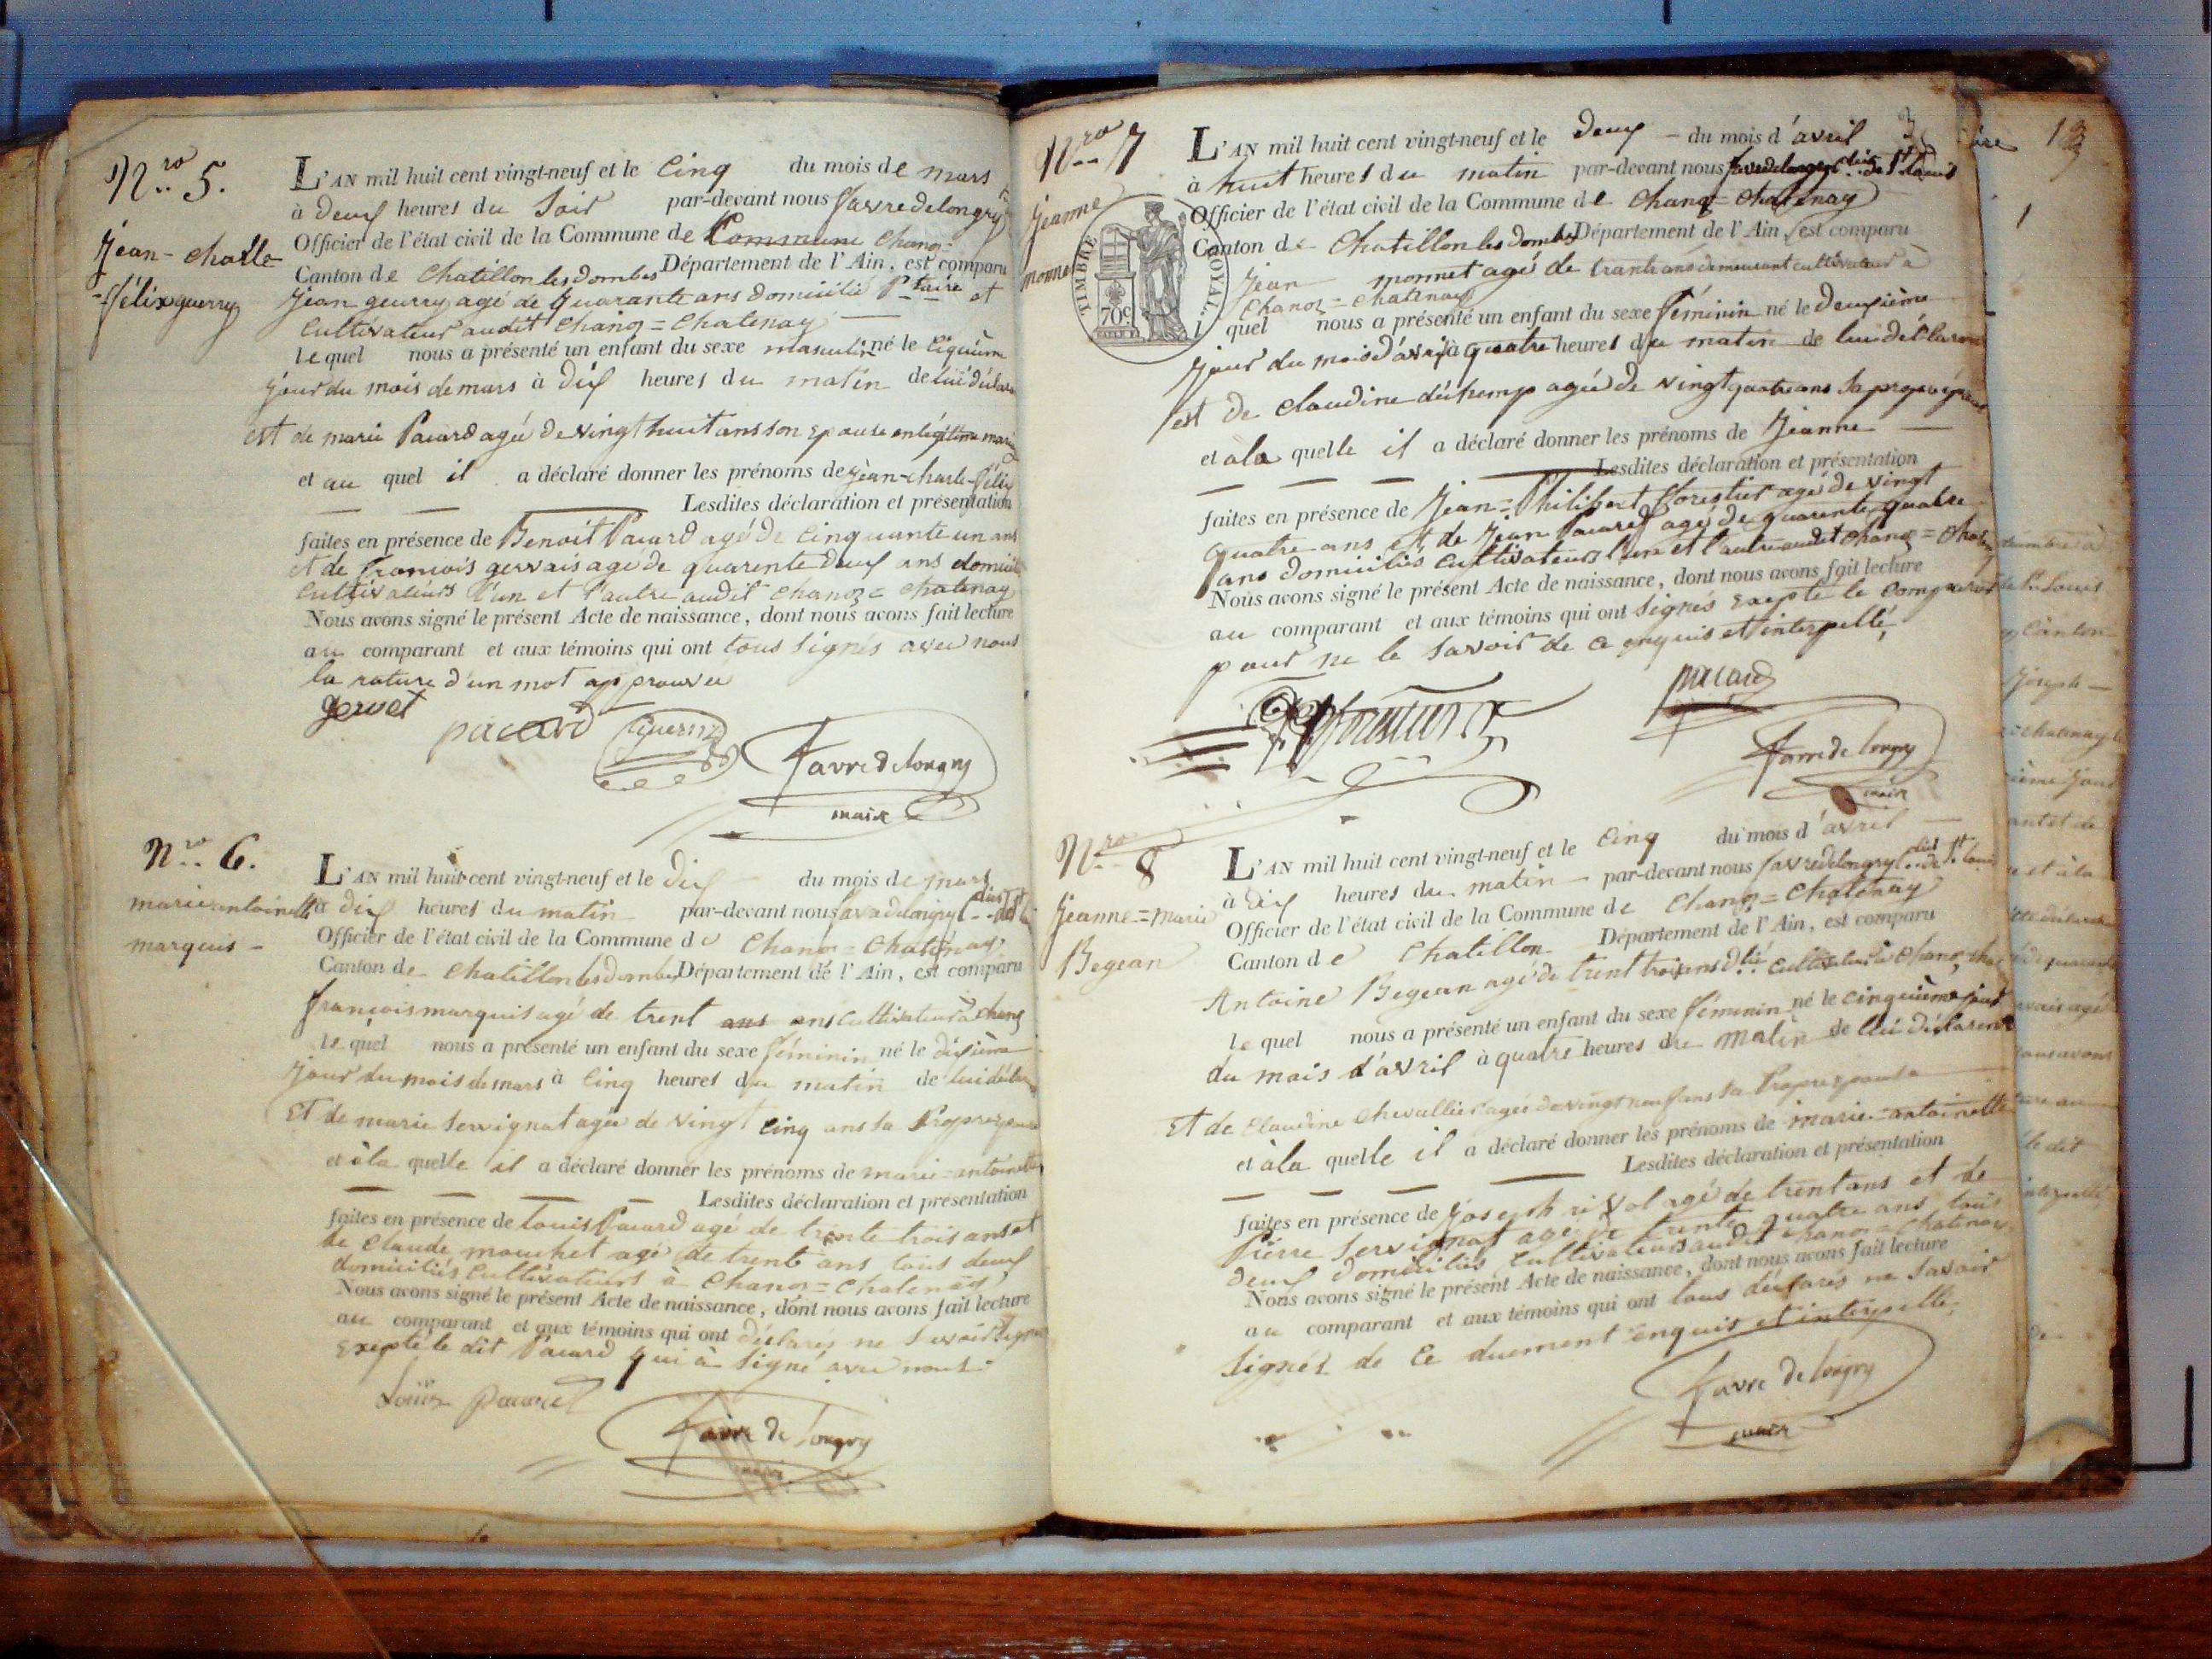 Nro 5.
Jean-charle
-félix guerry
L'AN mil huit cent vingt-neuf et le Cinq du mois de mars
à deux heures du Soir par-devant nous favredelongry
Officier de l'état civil de la Commune de Commune chanoz=
Canton de Chatillon les dombes Département de l'Ain, est comparu
Jean geurry agé de quarante ans domicilié Ptaire et
Cultivateur audit Chanoz=Chatenay
Lequel nous a présenté un enfant du sexe masculin né le
jour du mois de mars à dix heures du matin de lui
est de marie Pacard agée de vingt huit ans son Epouse en légitime
et au quel il a déclaré donner les prénoms de jean-charle-félix
Lesdites déclaration et présentation
faites en présence de Benoit Pacard agé de Cinquante un ans
et de francois gervais age de quarente deux ans
Cultivateurs l'un et l'autre audit Chanoz=Chatenay
Nous avons signé le présent Acte de naissance, dont nous avons fait lecture
au comparant et aux témoins qui ont tous signés avec nous
la rature d'un mot approuvée
pacard Guerry
favre de longry
maire
Nro 6.
marie antoinette
marquis -
L'AN mil huit cent vingt-neuf et le dix du mois de mars
à dix heures du matin par-devant nous favredelongry
Officier de l'état civil de la Commune de Chanoz=Chatenay
Canton de Chatillon les dombes Département de l'Ain, est comparu
francois marquis agé de trent ans ans Cultivateur à chanoz
Le quel nous a présenté un enfant du sexe féminin né le dixième
jour du mois de mars à Cinq heures du matin de lui
Et de marie Servignat agée de vingt cinq ans sa Propre
et àla quelle il a déclaré donner les prénoms de marie=antoinette
Lesdites déclaration et présentation
faites en présence de Louis Pacard agé de trente trois ans et
de Claude mouchet agé de trente ans tous deux
domiciliés Cultivateurs à Chanoz=Chatenay
Nous avons signé le présent Acte de naissance, dont nous avons fait lecture
au comparant et aux témoins qui ont déclarés ne savoir signer
Excepté le dit Pacard qui à signé avec nous.
Louis pacard
favre de longry
Nro 7
Jeanne
monnet
TIMBRE ROYAL.
70c
L'AN mil huit cent vingt-neuf et le deux du mois d'avril
à huit heures du matin par-devant nous
Officier de l'état civil de la Commune de Chanoz=Chatenay
Canton de Chatillon les dombes Département de l'Ain, est comparu
Jean monnet agé de trante ans demeurant cultivateur à
Chanoz=Chatenay
l quel nous a présenté un enfant du sexe féminin né le deuxième
jour du mois d'avril à quatre heures du matin de lui déclarant
est de Claudine agée de vingt quatre ans sa propre
et àla quelle il a déclaré donner les prénoms de Jeanne
Lesdites déclaration et présentation
faites en présence de Jean=Philibert forestier agé de vingt
quatre ans et de Jean Pacard agé de quarente quatre
ans domiciliés Cultivateurs l'un et l'autre audit Chanoz=
Nous avons signé le présent Acte de naissance, dont nous avons fait lecture
au comparant et aux témoins qui ont signés Excepté le comparant
pour ne le Savoir de ce enquis et interpellé,
pacard
favre de longry
maire
Nro 8
Jeanne=marie
Begean
L'AN mil huit cent vingt-neuf et le Cinq du mois d'avril
à dix heures du matin par-devant nous favredelongry
Officier de l'état civil de la Commune de Chanoz=Chatenay
Canton de Chatillon Département de l'Ain, est comparu
Antoine Begean agé de trent trois ans Cultivateur à Chanoz
Le quel nous a présenté un enfant du sexe féminin né le cinquième jour
du mois d'avril à quatre heures du matin de lui déclarent
Et de Claudine Chevallier agée de vingt neuf ans sa Propre Epouse
et àla quelle il a déclaré donner les prénoms de marie=antoinette
Lesdites déclaration et présentation
faites en présence de Joseph rivol agé de trent ans et de
Pierre Servignat agé de trente quatre ans tous
deux domiciliés Cultivateurs audit Chanoz=Chatenay
Nous avons signé le présent Acte de naissance, dont nous avons fait lecture
au comparant et aux témoins qui ont tous déclarés ne Savoir
Signés de Ce duement enquis et interpellé,
favre de longry
maire